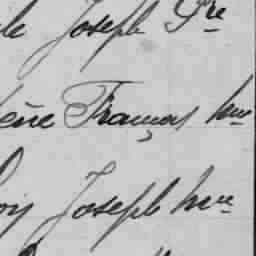 le Joseph Pre
ène François hme
oy Joseph hme